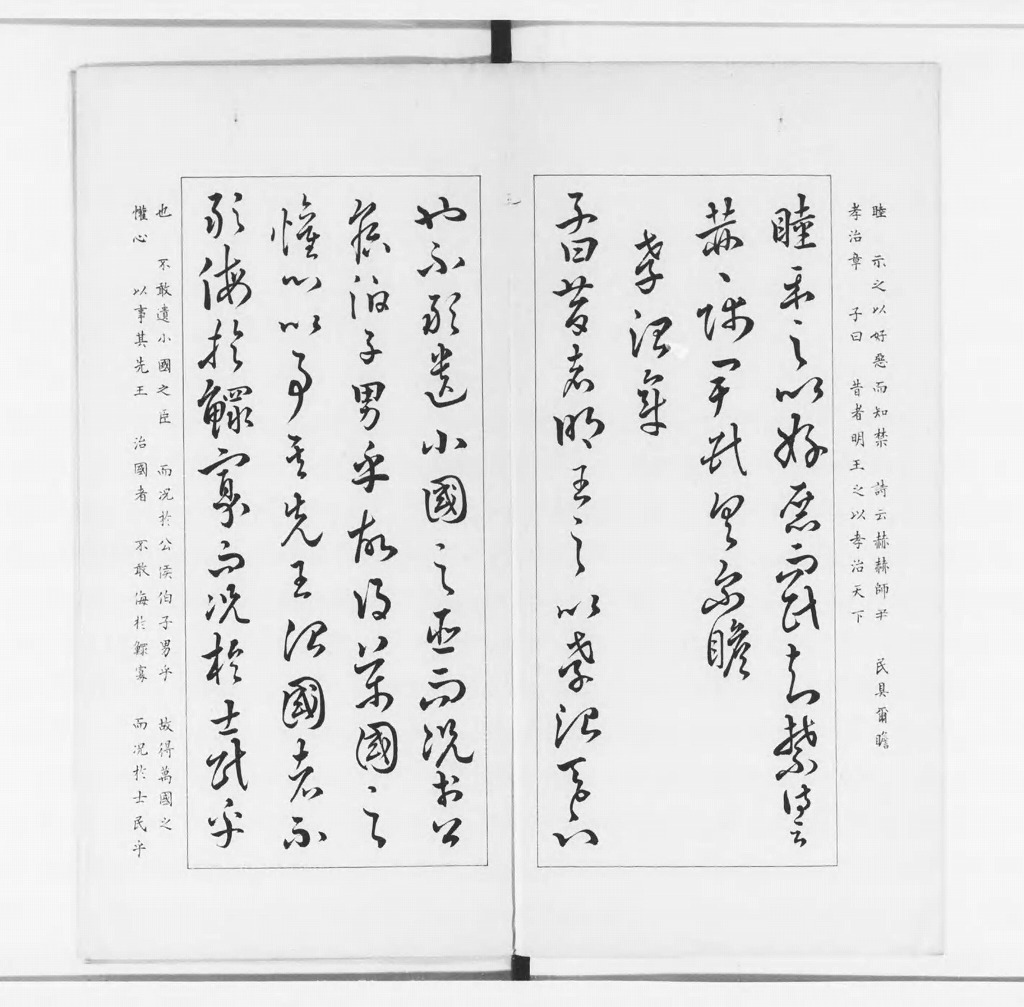 睦 示之以好惡而知禁 詩云赫赫師尹 民具爾瞻
孝治章 子曰 昔者明王之以孝治天下
睦示之以好惡而民知禁詩云
赫〻師尹民具爾瞻
孝治章
子曰昔者明王之以孝治天下
也不敢遺小國之臣而况於公
侯伯子男乎故得萬國之
懽心以事其先王治國者不
敢侮於鰥寡而况於士民乎
也 不敢遺小國之臣 而况於公侯伯子男乎 故得萬國之
懽心 以事其先王 治國者 不敢侮於鰥寡 而况於士民乎